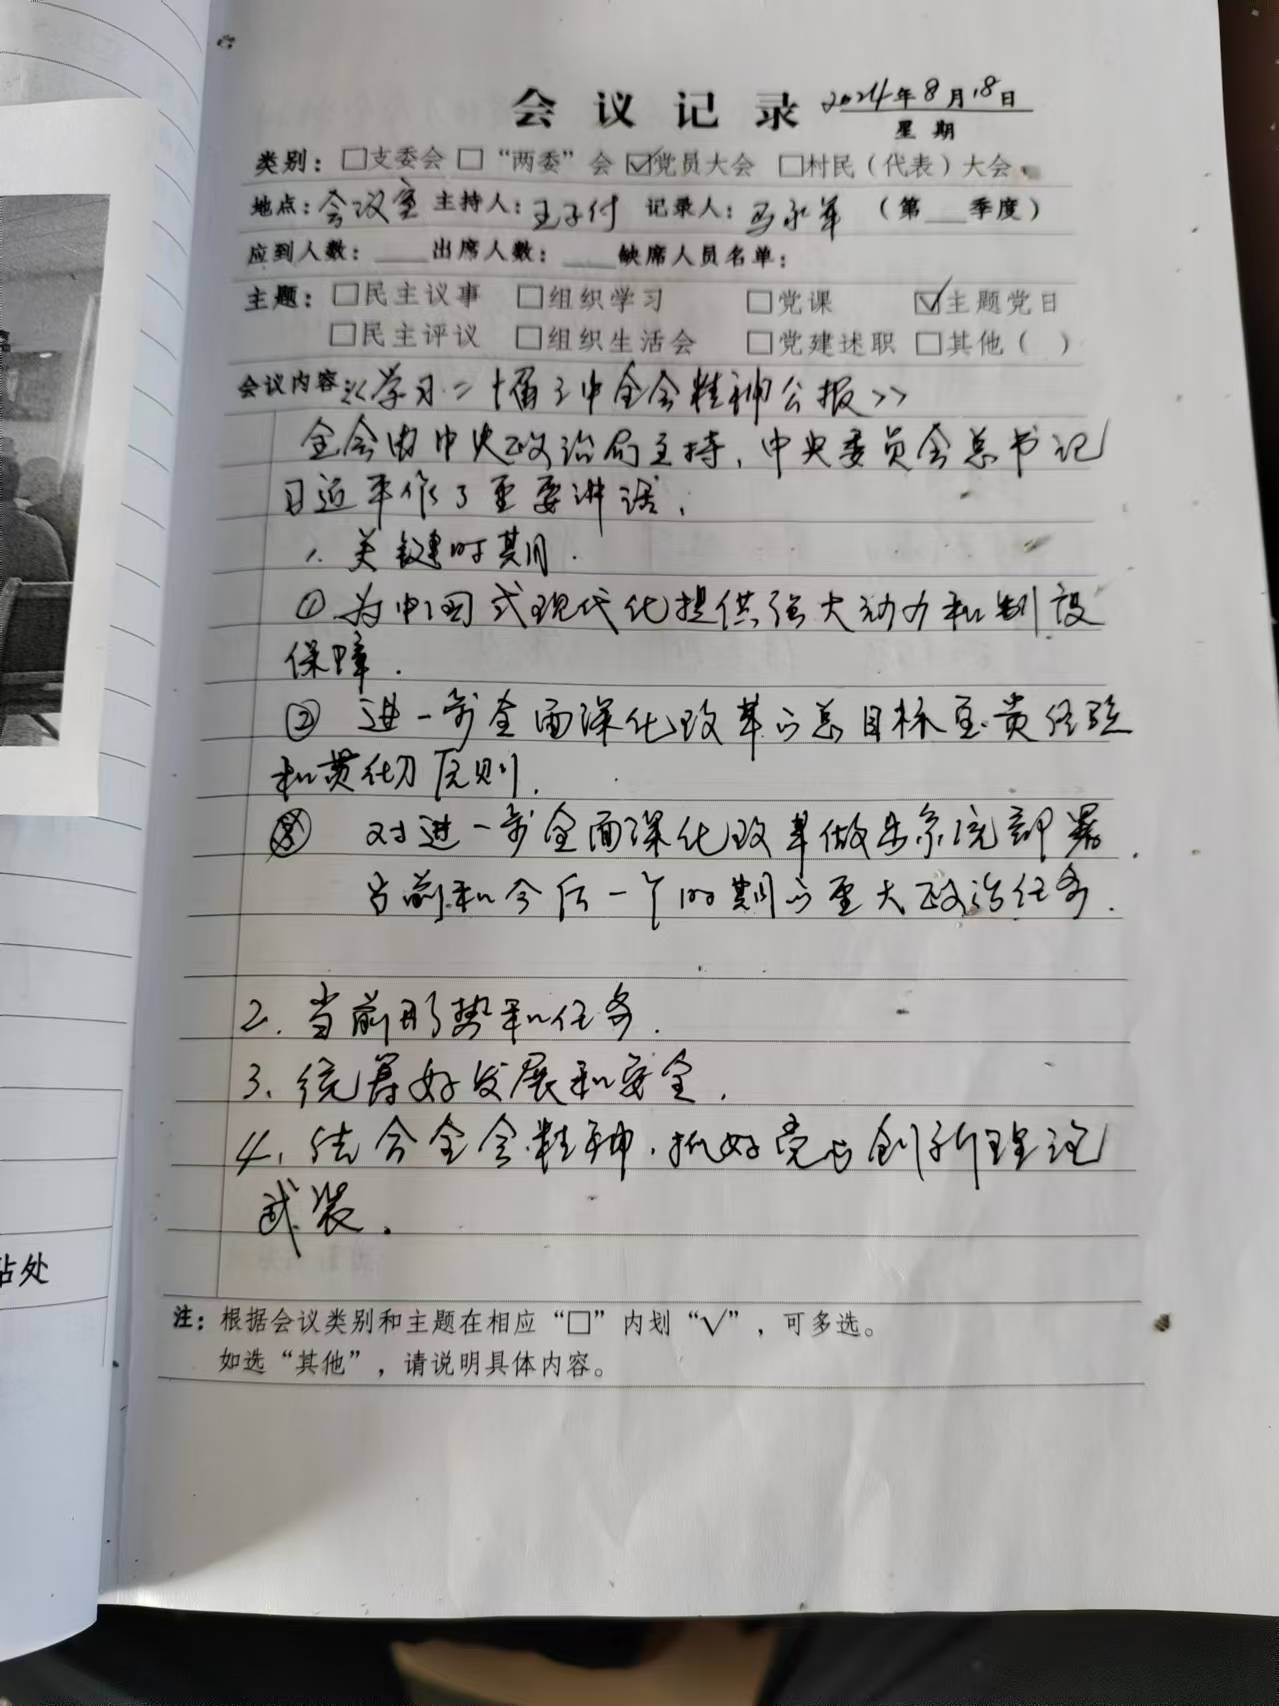 会议记录 2024年8月18日
星期
类别：□支委会 □“两委”会 ☑党员大会 □村民（代表）大会
地点：会议室 主持人：王子付 记录人：马永军 （第___季度）
应到人数：___出席人数：___缺席人员名单：
主题：□民主议事 □组织学习 □党课 ☑主题党日
□民主评议 □组织生活会 □党建述职 □其他（ ）
会议内容：《学习二十届三中全会精神公报》
全会由中央政治局主持，中央委员会总书记
习近平作了重要讲话，
1、关键时期．
①为中国式现代化提供强大动力和制度
保障．
②进一步全面深化改革的总目标重贵经验
和贯彻原则．
③对进一步全面深化改革做出系统部署．
当前和今后一个时期的重大政治任务．
2．当前形势和任务．
3、统筹好发展和安全．
4、结合全会精神．抓好党的创新理论
武装．
注：根据会议类别和主题在相应“□”内划“√”，可多选。
如选“其他”，请说明具体内容。
占处